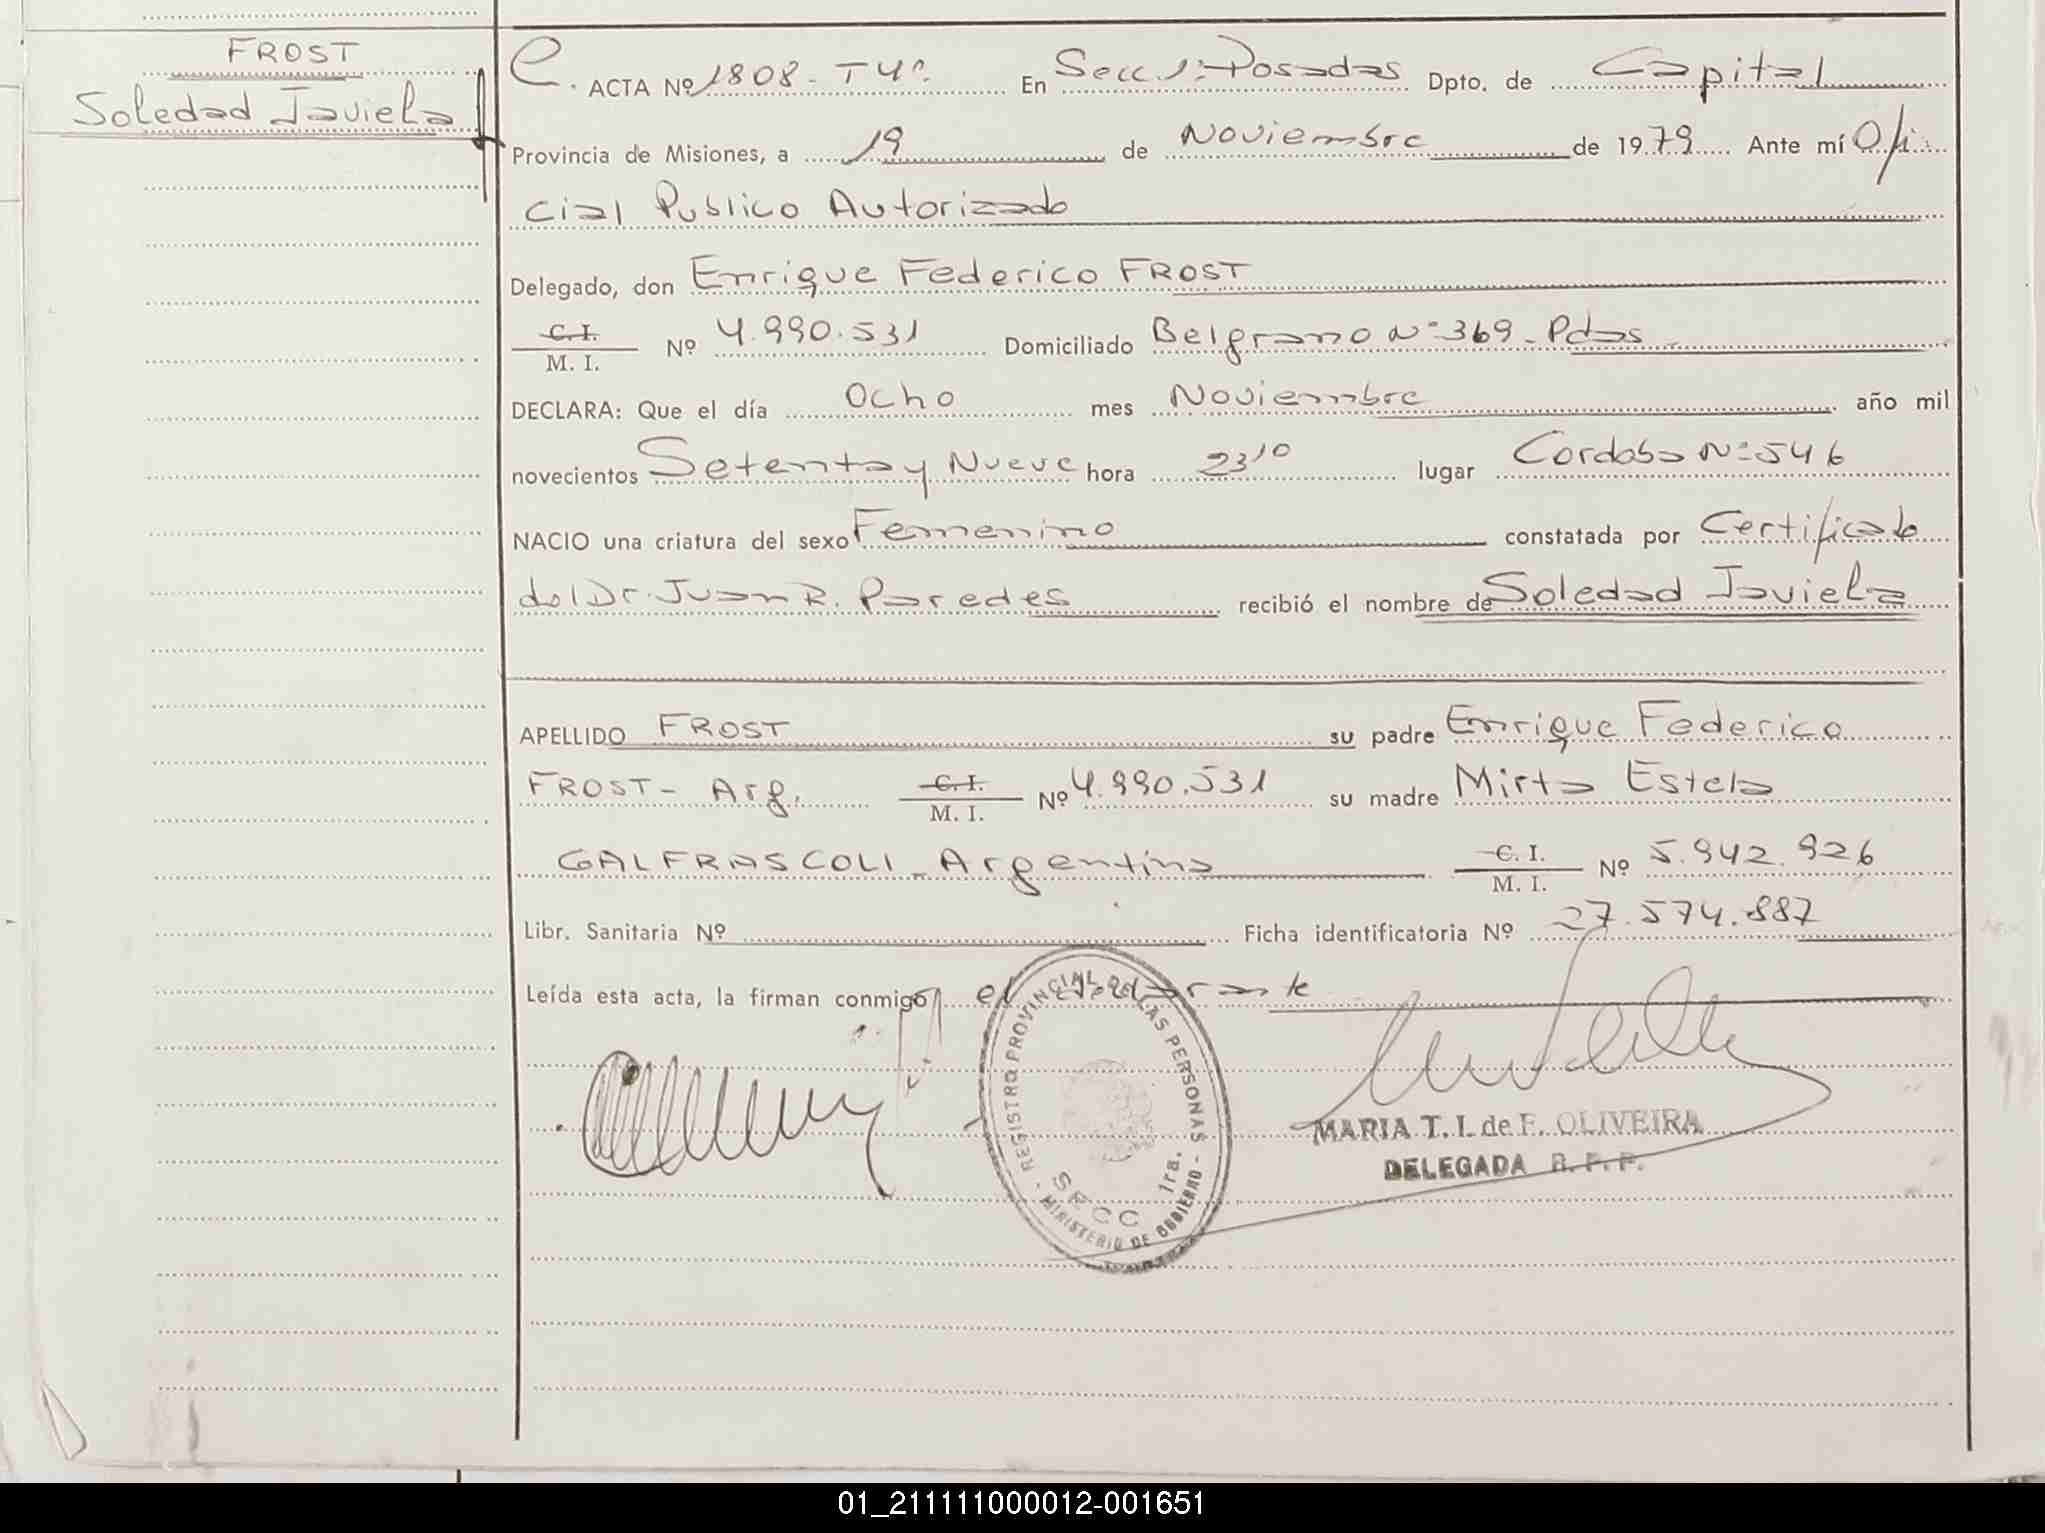 FROST
Soledad Javiela
e. ACTA Nº 1808 - T4º. En Secc 1º: Posadas Dpto. de Capital
Provincia de Misiones, a 19 de Noviembre de 1979 Ante mí Ofi
cial Publico Autorizado
Delegado, don Enrique Federico FROST
C. I.
M. I. Nº 4.990.531 Domiciliado Belgrano Nº 369 - Pdas
DECLARA: Que el día Ocho mes Noviembre año mil
novecientos Setenta y Nueve hora 23 10 lugar Cordoba Nº 546
NACIO una criatura del sexo Femenino constatada por Certificado
del Dr. Juan R. Paredes recibió el nombre de Soledad Javiela
APELLIDO FROST su padre Enrique Federico
FROST - Arg. C. I. M. I. Nº 4.990.531 su madre Mirta Estela
GALFRASCOLI - Argentina C. I. M. I. Nº 5.942.926
Libr. Sanitaria Nº Ficha identificatoria Nº 27.574.887
Leída esta acta, la firman conmigo el declarante
REGISTRO PROVINCIAL DE LAS PERSONAS
SECC 1ra.
MINISTERIO DE GOBIERNO
MARIA T. I. de F. OLIVEIRA
DELEGADA R. P. P.
01_211111000012-001651